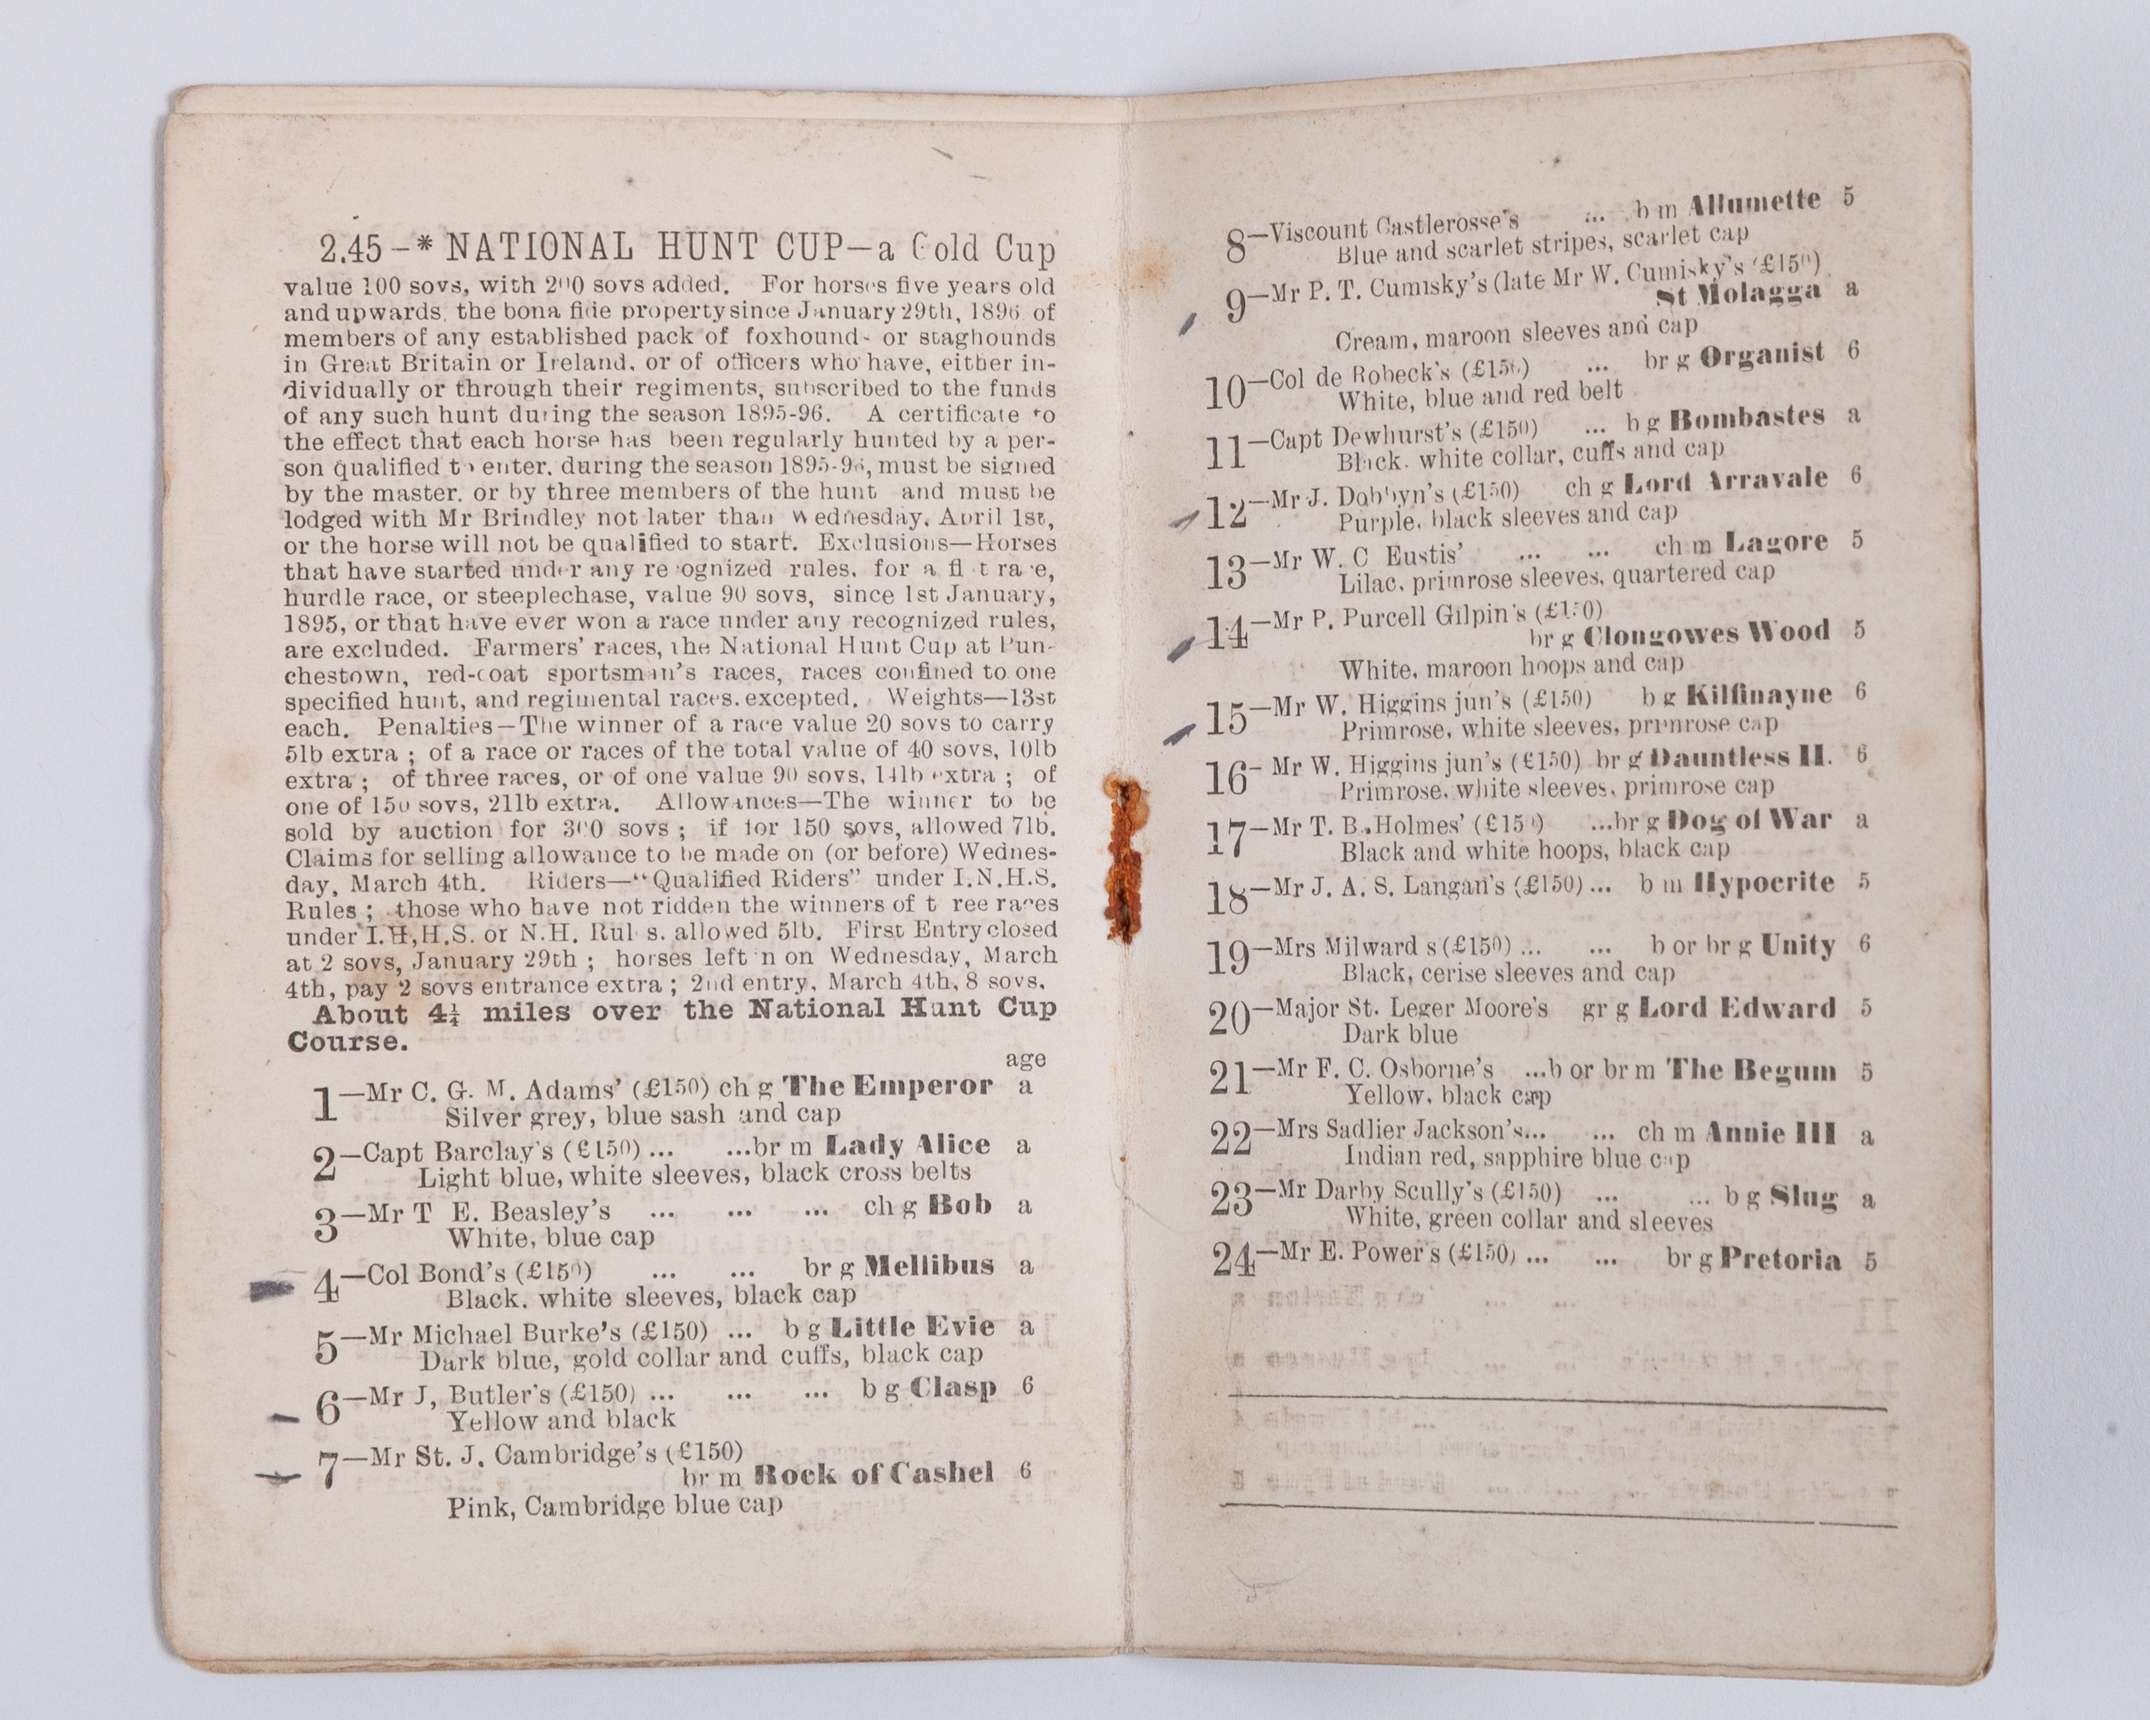 2.45–* NATIONAL HUNT CUP—a Gold Cup
value 100 sovs, with 200 sovs added. For horses five years old
and upwards, the bona fide property since January 29th, 1896 of
members of any established pack of foxhound- or staghounds
in Great Britain or Ireland, or of officers who have, either in-
dividually or through their regiments, subscribed to the funds
of any such hunt during the season 1895-96. A certificate to
the effect that each horse has been regularly hunted by a per-
son qualified to enter, during the season 1895-96, must be signed
by the master, or by three members of the hunt and must be
lodged with Mr Brindley not later than Wednesday, April 1st,
or the horse will not be qualified to start. Exclusions—Horses
that have started under any recognized rules, for a flat race,
hurdle race, or steeplechase, value 90 sovs, since 1st January,
1895, or that have ever won a race under any recognized rules,
are excluded. Farmers' races, the National Hunt Cup at Pun-
chestown, red-coat sportsman's races, races confined to one
specified hunt, and regimental races excepted. Weights—13st
each. Penalties—The winner of a race value 20 sovs to carry
5lb extra ; of a race or races of the total value of 40 sovs, 10lb
extra ; of three races, or of one value 90 sovs, 14lb extra ; of
one of 150 sovs, 21lb extra. Allowances—The winner to be
sold by auction for 300 sovs ; if for 150 sovs, allowed 7lb.
Claims for selling allowance to be made on (or before) Wednes-
day, March 4th. Riders—"Qualified Riders" under I.N.H.S.
Rules ; those who have not ridden the winners of three races
under I.H,H.S. or N.H. Rules. allowed 5lb. First Entry closed
at 2 sovs, January 29th ; horses left in on Wednesday, March
4th, pay 2 sovs entrance extra ; 2nd entry, March 4th, 8 sovs.
About 4¼ miles over the National Hunt Cup
Course.
age
1—Mr C. G. M. Adams' (£150) ch g The Emperor a
Silver grey, blue sash and cap
2—Capt Barclay's (£150) ... ...br m Lady Alice a
Light blue, white sleeves, black cross belts
3—Mr T E. Beasley's ... ... ... ch g Bob a
White, blue cap
4—Col Bond's (£150) ... ... br g Mellibus a
Black, white sleeves, black cap
5—Mr Michael Burke's (£150) ... b g Little Evie a
Dark blue, gold collar and cuffs, black cap
6—Mr J, Butler's (£150) ... ... ... b g Clasp 6
Yellow and black
7—Mr St. J. Cambridge's (£150)
br m Rock of Cashel 6
Pink, Cambridge blue cap
8—Viscount Castlerosse's ... b m Allumette 5
Blue and scarlet stripes, scarlet cap
9—Mr P. T. Cumisky's (late Mr W. Cumisky's (£150)
St Molagga a
Cream, maroon sleeves and cap
10—Col de Robeck's (£150) ... br g Organist 6
White, blue and red belt
11—Capt Dewhurst's (£150) ... b g Bombastes a
Black, white collar, cuffs and cap
12—Mr J. Dobbyn's (£150) ch g Lord Arravale 6
Purple, black sleeves and cap
13—Mr W. C Eustis' ... ... ch m Lagore 5
Lilac, primrose sleeves, quartered cap
14—Mr P. Purcell Gilpin's (£150)
br g Clongowes Wood 5
White, maroon hoops and cap
15—Mr W. Higgins jun's (£150) b g Kilfinayne 6
Primrose, white sleeves, primrose cap
16- Mr W. Higgins jun's (£150) br g Dauntless II. 6
Primrose, white sleeves, primrose cap
17—Mr T. B. Holmes' (£150) ...br g Dog of War a
Black and white hoops, black cap
18—Mr J. A. S. Langan's (£150)... b m Hypocrite 5
19—Mrs Milward s (£150) ... ... b or br g Unity 6
Black, cerise sleeves and cap
20—Major St. Leger Moore's gr g Lord Edward 5
Dark blue
21—Mr F. C. Osborne's ...b or br m The Begum 5
Yellow, black cap
22—Mrs Sadlier Jackson's... ... ch m Annie III a
Indian red, sapphire blue cap
23—Mr Darby Scully's (£150) ... ... b g Slug a
White, green collar and sleeves
24—Mr E. Power's (£150) ... ... br g Pretoria 5